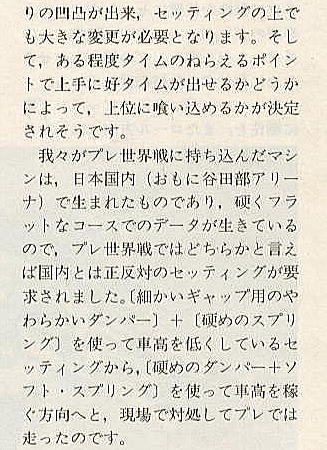 りの凹凸が出来，セッティングの上で
も大きな変更が必要となります。そし
て，ある程度タイムのねらえるポイン
トで上手に好タイムが出せるかどうか
によって，上位に喰い込めるかが決定
されそうです。
　我々がプレ世界戦に持ち込んだマシ
ンは，日本国内（おもに谷田部アリー
ナ）で生まれたものであり，硬くフラ
ットなコースでのデータが生きている
ので，プレ世界戦ではどちらかと言え
ば国内とは正反対のセッティングが要
求されました。〔細かいギャップ用のや
わらかいダンパー〕＋〔硬めのスプリ
ング〕を使って車高を低くしているセ
ッティングから，〔硬めのダンパー＋ソ
フト・スプリング〕を使って車高を稼
ぐ方向へと，現場で対処してプレでは
走ったのです。